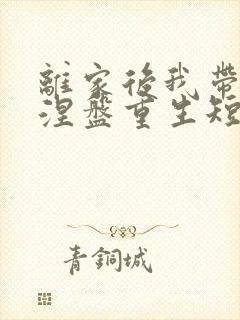 離家後我帶
涅盤重生短
青銅城